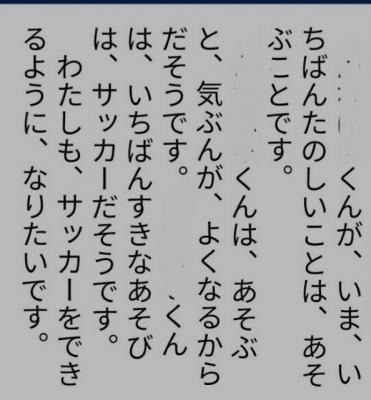 くんが、いま、い
ちばんたのしいことは、あそ
ぶことです。
くんは、あそぶ
と、気ぶんが、よくなるから
だそうです。くん
は、いちばんすきなあそび
は、サッカーだそうです。
わたしも、サッカーをでき
るように、なりたいです。